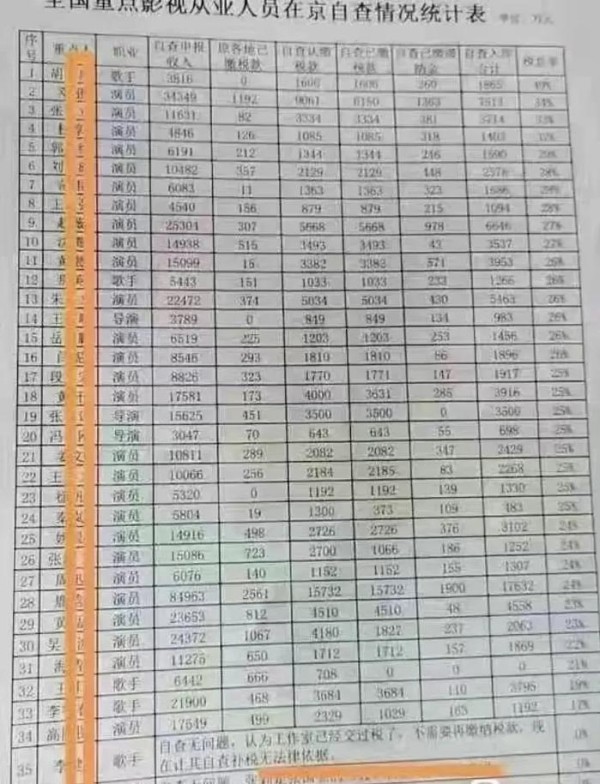 全国重点影视从业人员在京自查情况统计表 单位：万元
序号 重点人 职业 自查申报收入 原各地已缴税款 自查认缴税款 自查已缴税款 自查已缴滞纳金 自查入库合计 税总率
1 胡 歌手 3816 0 1606 1606 260 1865 49%
2 邓 演员 34349 1192 9061 6150 1363 7513 34%
3 张 演员 11631 82 3334 3334 381 3714 33%
4 杜 演员 4846 126 1085 1085 318 1403 32%
5 郭 演员 6191 212 1344 1344 246 1590 29%
6 刘 演员 10482 357 2129 2129 448 2576 28%
7 演员 6083 11 1363 1363 323 1686 28%
8 王 演员 4540 156 879 879 215 1094 28%
9 赵 演员 25304 307 5668 5668 978 6646 27%
10 演员 14938 515 3493 3493 43 3537 27%
11 黄 演员 15099 15 3382 3382 571 3953 26%
12 歌手 5443 151 1033 1033 233 1266 26%
13 朱 演员 22472 374 5034 5034 430 5463 26%
14 王 导演 3789 0 849 849 134 983 26%
15 岳 演员 6519 225 1203 1203 253 1456 26%
16 闫 演员 8546 293 1810 1810 86 1896 26%
17 段 演员 8826 323 1770 1771 147 1917 25%
18 黄 演员 17581 173 4000 3631 285 3916 25%
19 张 导演 15625 451 3500 3500 0 3500 25%
20 冯 导演 3047 70 643 643 55 698 25%
21 姜文 演员 10811 289 2082 2082 347 2429 25%
22 王 演员 10066 256 2184 2185 83 2268 25%
23 杨 演员 5320 0 1192 1192 139 1330 25%
24 秦 演员 5804 19 1300 373 109 483 25%
25 姚 演员 14916 498 2726 2726 376 3102 24%
26 张 演员 15086 723 2700 1066 186 1252 24%
27 周 演员 6076 140 1152 1152 155 1307 24%
28 演员 84963 2561 15732 15732 1900 17632 24%
29 黄 演员 23653 812 4510 4510 48 4558 23%
30 吴 演员 24372 1067 4180 1827 237 2063 23%
31 演员 11275 650 1712 1712 157 1869 22%
32 王 歌手 6442 666 708 0 0 21%
33 李 歌手 21900 468 3684 3684 110 3795 19%
34 高 演员 17649 499 2329 1029 163 1192 17%
35 李 歌手 自查无问题，认为工作室已经交过税了，不需要再缴纳税款，现
在计其自查补税无法律依据。